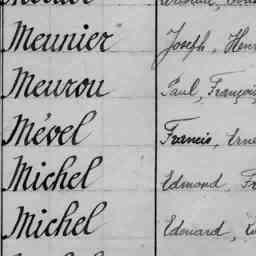 Meunier Joseph, Hen
Meurou Paul, François
Mével Francis, Erne
Michel Edmond, Fr
Michel Edouard,